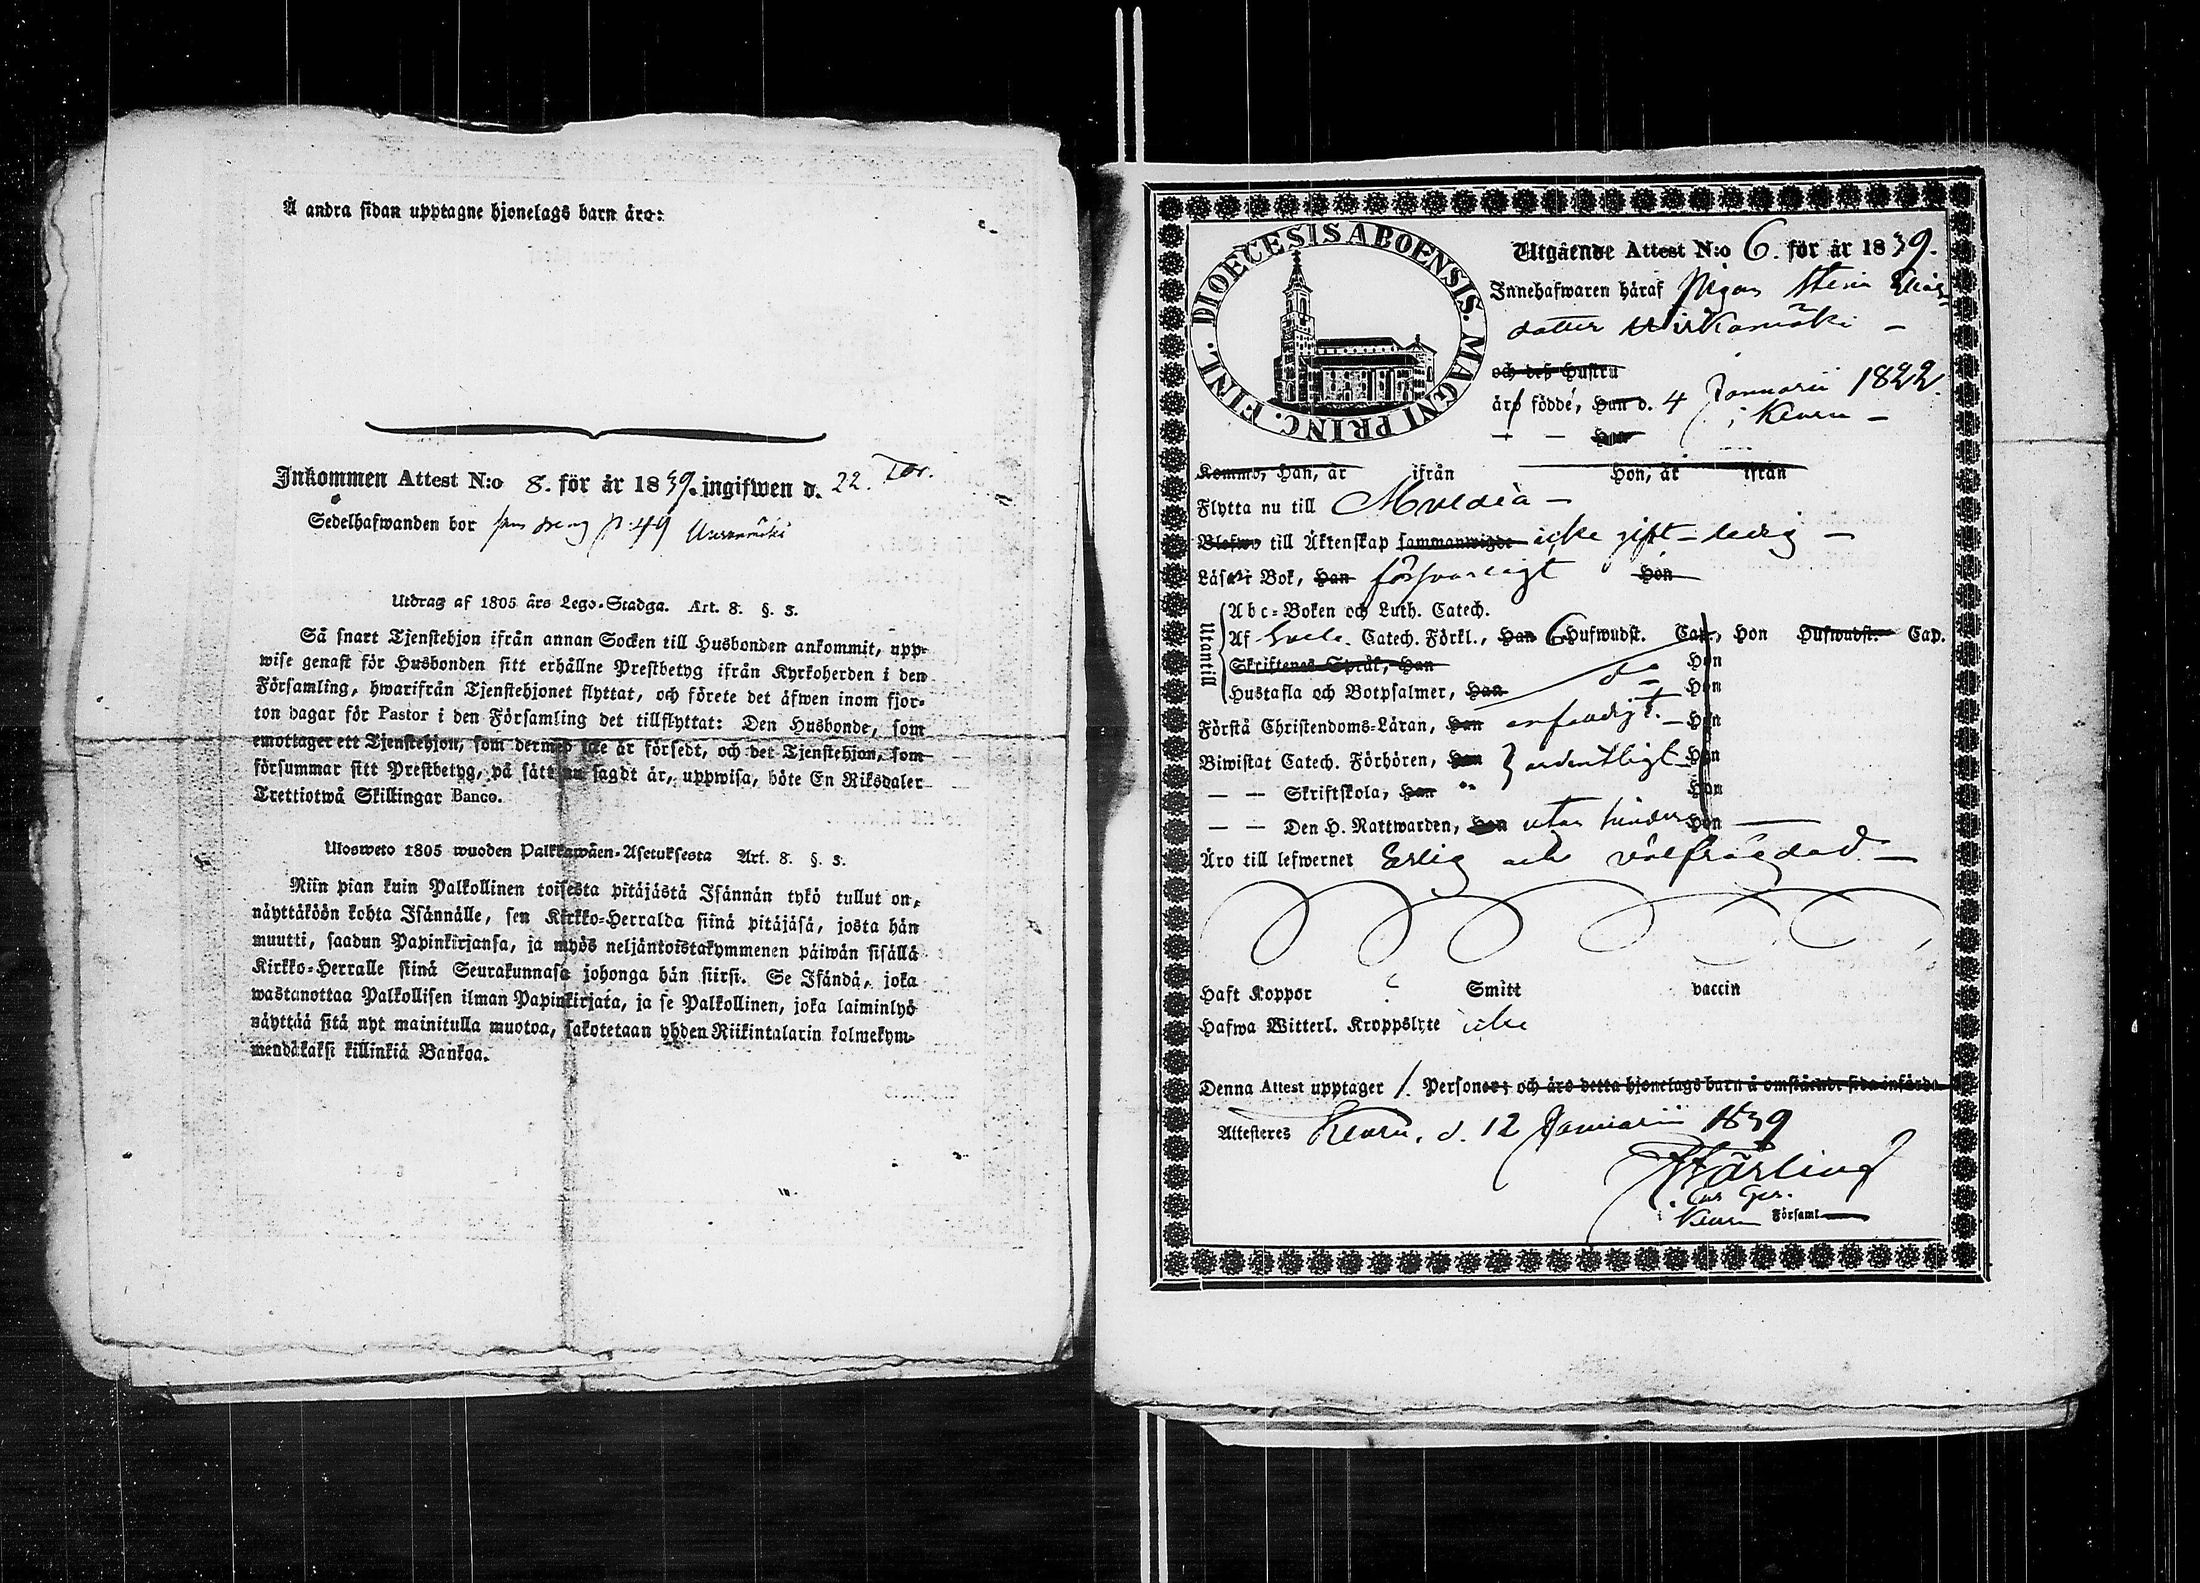 Å andra sidan upptagne hjonelags barn äro:
Inkommen Attest N:o 8. för år 1839. ingifwen d. 22.
Sedelhafwanden bor
Utdrag af 1805 års Lego-Stadga. Art. 8. §. 3.
Så snart Tjenstehjon ifrån annan Socken till Husbonden ankommit, upp-
wise genast för Husbonden sitt erhållne Prestbetyg ifrån Kyrkoherden i den
Församling, hwarifrån Tjenstehjonet flyttat, och förete det äfwen inom fjor-
ton dagar för Pastor i den Församling det tillflyttat: Den Husbonde, som
emottager ett Tjenstehjon, som dermed icke är försedt, och det Tjenstehjon, som
försummar sitt Prestbetyg, på sätt nu sagdt är, uppwisa, böte En Riksdaler
Trettiotwå Skillingar Banco.
Ulosweto 1805 wuoden Palkkawäen-Asetuksesta Art. 8. §. 3.
Niin pian kuin Palkollinen toisesta pitäjästä Isännän tykö tullut on,
näyttäköön kohta Isännälle, sen Kirkko-Herralda siinä pitäjäsä, josta hän
muutti, saadun Papinkirjansa, ja myös neljäntoistakymmenen päiwän sisällä
Kirkko-Herralle siinä Seurakunnasa johonga hän siirsi. Se Isändä, joka
wastanottaa Palkollisen ilman Papinkirjata, ja se Palkollinen, joka laiminlyö
näyttää sitä nyt mainitulla muotoa, sakotetaan yhden Riikintalarin kolmekym-
mendäkaksi killinkiä Bankoa.
DIOECESIS ABOENSIS. MAGNI PRINC. FINL.
Utgående Attest N:o 6. för år 1839.
Innehafwaren häraf Pigan Stina Elias
dotter
och deß Hustru
äro födde, Han d. 4 Januarii 1822.
i Keuru
— — Hon
Kommo, Han, år ifrån Hon, år ifrån
Flytta nu till Muldia —
Blefwo till Äktenskap sammanwigde icke gift - ledig —
Läsa i Bok, Han försvarligt Hon
Utantill
Abc-Boken och Luth. Catech.
Af Svebe. Catech. Förkl., Han 6 Hufwudst. Cap., Hon Hufwudst. Cap.
Skriftenes Språk, Han Hon
Hustafla och Botpsalmer, Han Hon
Förstå Christendoms-Läran, Han Hon
Biwistat Catech. Förhören, Han ordentligt Hon
— — Skriftskola, Han Hon
— — Den H. Nattwarden, Han utan hinder Hon
Äro till lefwernet Ärlig och välfrägdad —
Haft Koppor ? Smitt vaccin
Hafwa Witterl. Kroppslyte icke
Denna Attest upptager 1. Personer; och äro detta hjonelags barn å omstående sida införde.
Attesteres Keuru, d. 12 Januarii 1839
i Keuru Församl.